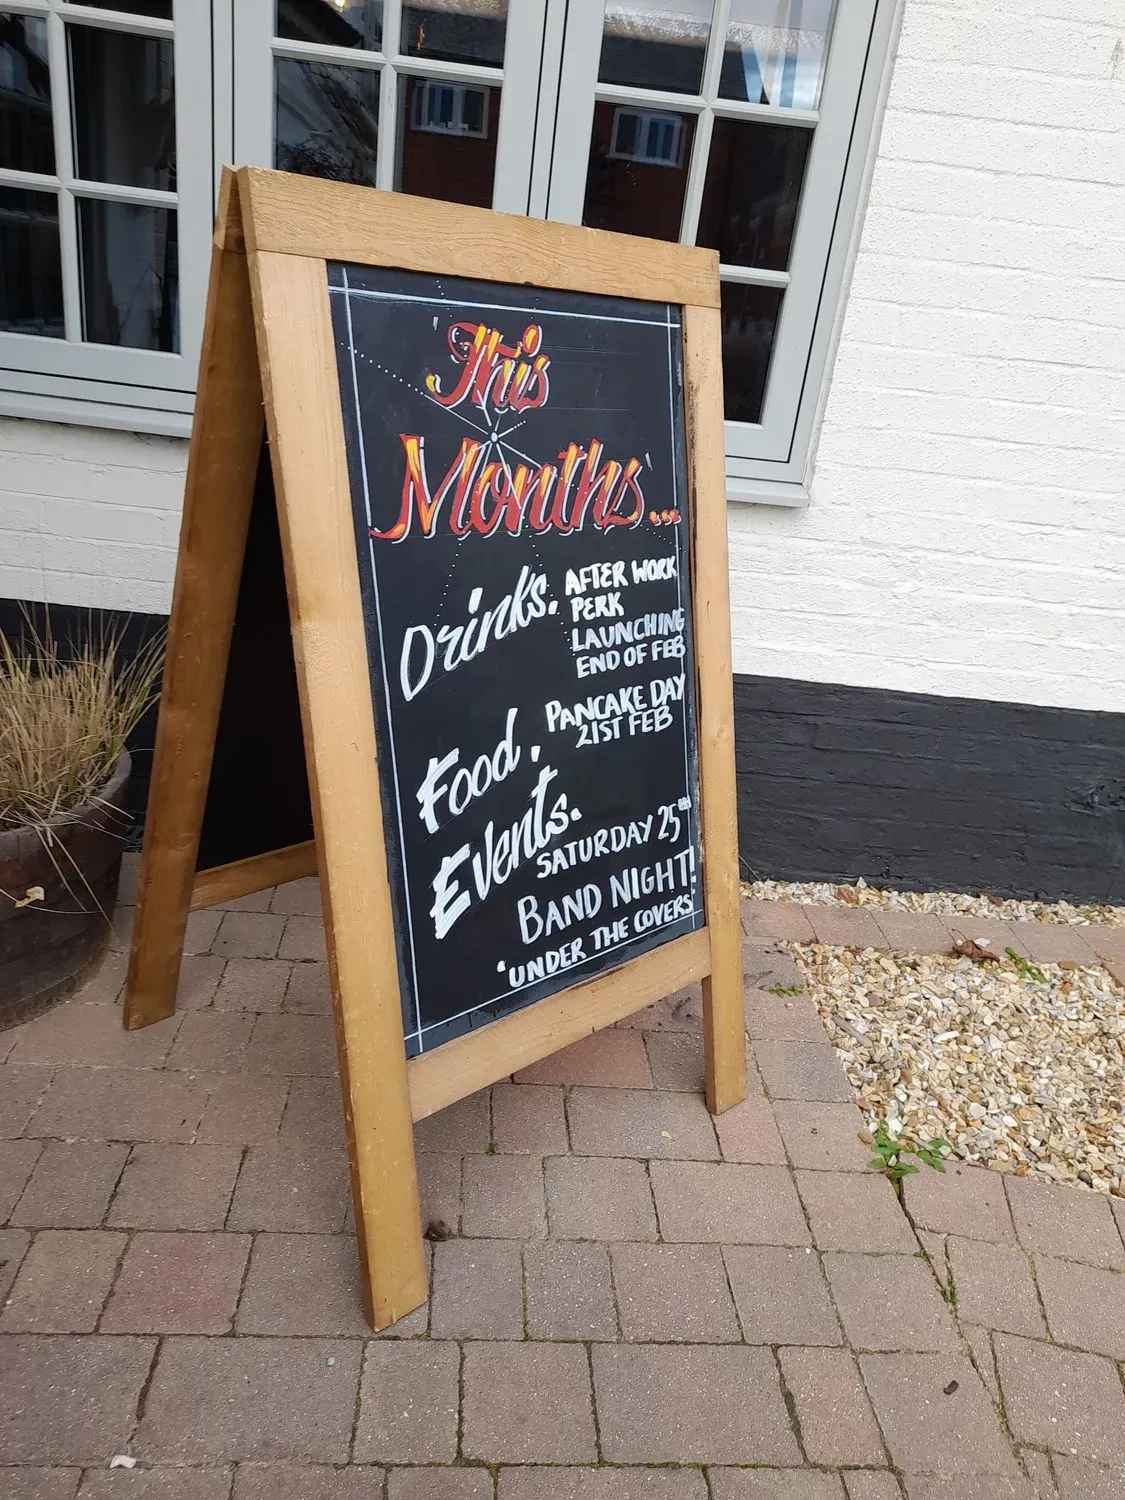 'This
Months'...
Drinks. AFTER WORK
PERK
LAUNCHING
END OF FEB
Food. PANCAKE DAY
21ST FEB
Events. SATURDAY 25TH
BAND NIGHT!
'UNDER THE COVERS'